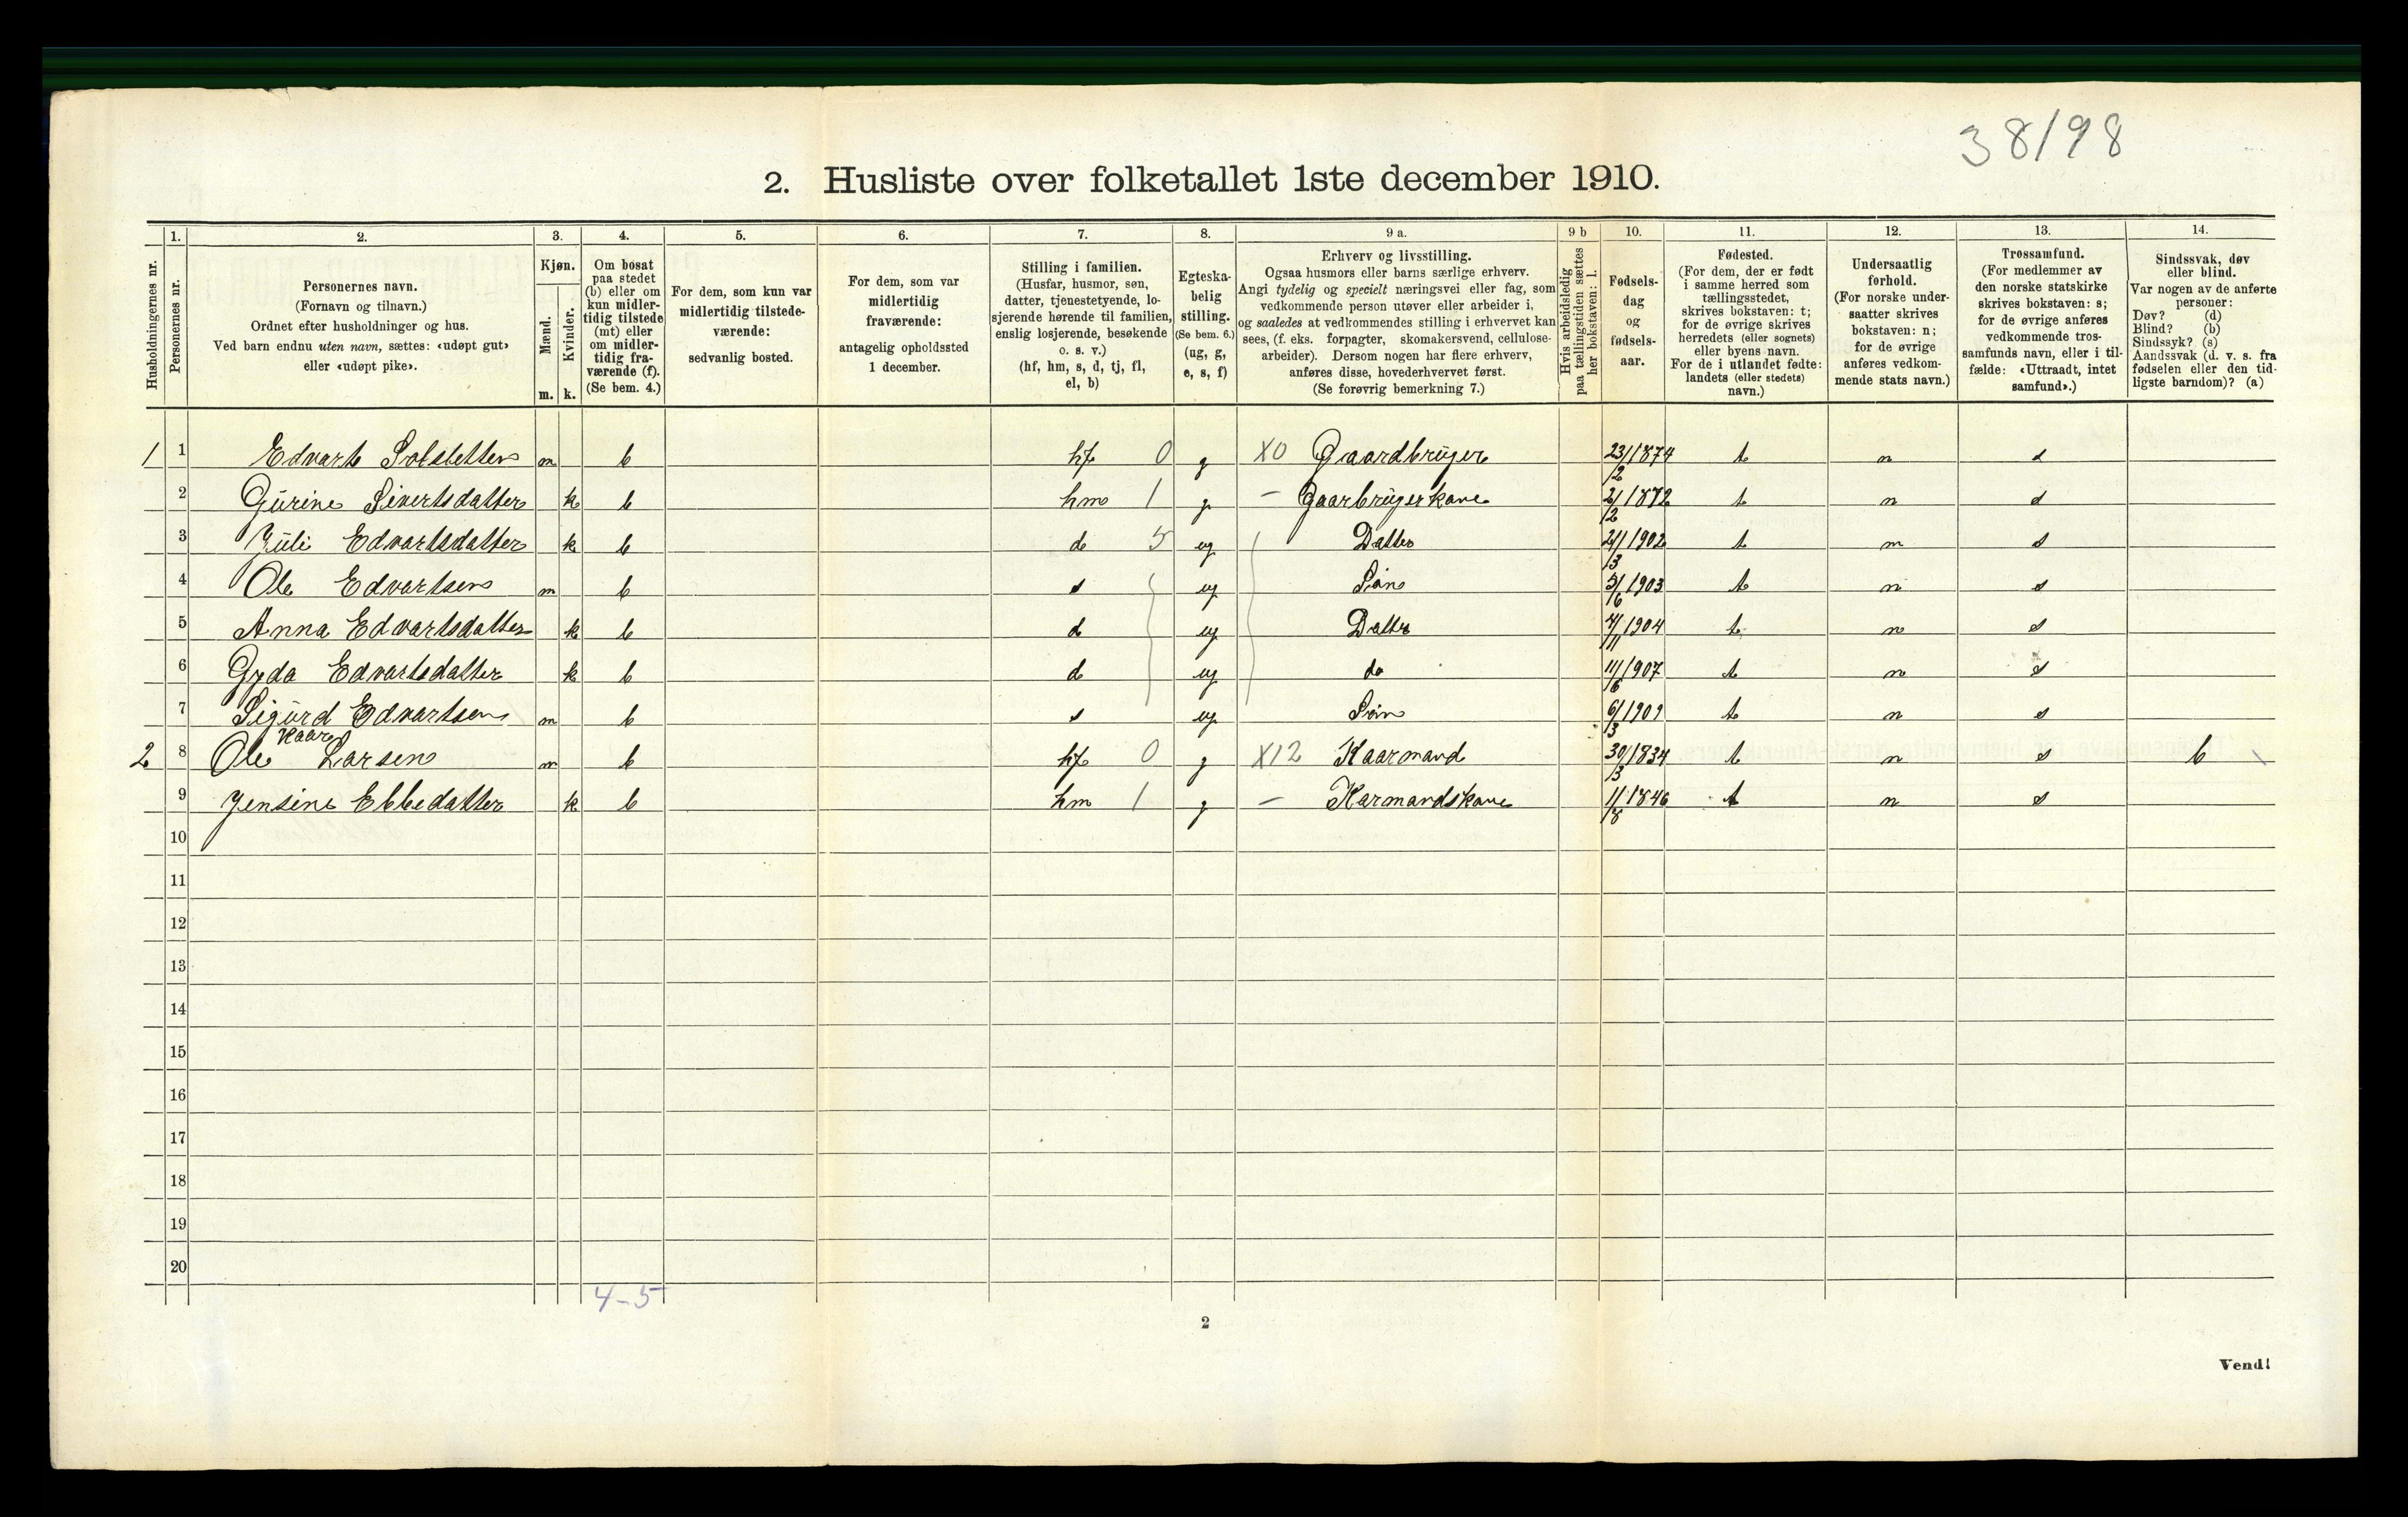 38/98
2. Husliste over folketallet 1ste december 1910.
Husholdningernes nr.
1.
Personernes nr.
2.
Personernes navn.
(Fornavn og tilnavn.)
Ordnet efter husholdninger og hus.
Ved barn endnu uten navn, sættes: «udøpt gut»
eller «udøpt pike».
3.
Kjøn.
Mænd.
Kvinder.
m. k.
4.
Om bosat
paa stedet
(b) eller om
kun midler-
tidig tilstede
(mt) eller
om midler-
tidig fra-
værende (f).
(Se bem. 4.)
5.
For dem, som kun var
midlertidig tilstede-
værende:
sedvanlig bosted.
6.
For dem, som var
midlertidig
fraværende:
antagelig opholdssted
1 december.
7.
Stilling i familien.
(Husfar, husmor, søn,
datter, tjenestetyende, lo-
sjerende hørende til familien,
enslig losjerende, besøkende
o. s. v.)
(hf, hm, s, d, tj, fl,
el, b)
8.
Egteska-
belig
stilling.
(Se bem. 6.)
(ug, g,
e, s, f)
9 a.
Erhverv og livsstilling.
Ogsaa husmors eller barns særlige erhverv.
Angi tydelig og specielt næringsvei eller fag, som
vedkommende person utøver eller arbeider i,
og saaledes at vedkommendes stilling i erhvervet kan
sees, (f. eks. forpagter, skomakersvend, cellulose-
arbeider). Dersom nogen har flere erhverv,
anføres disse, hovederhvervet først.
(Se forøvrig bemerkning 7.)
9 b
Hvis arbeidsledig
paa tællingstiden sættes
her bokstaven: l.
10.
Fødsels-
dag
og
fødsels-
aar.
11.
Fødested.
(For dem, der er født
i samme herred som
tællingsstedet,
skrives bokstaven: t;
for de øvrige skrives
herredets (eller sognets)
eller byens navn.
For de i utlandet fødte:
landets (eller stedets)
navn.)
12.
Undersaatlig
forhold.
(For norske under-
saatter skrives
bokstaven: n;
for de øvrige
anføres vedkom-
mende stats navn.)
13.
Trossamfund.
(For medlemmer av
den norske statskirke
skrives bokstaven: s;
for de øvrige anføres
vedkommende tros-
samfunds navn, eller i til-
fælde: «Uttraadt, intet
samfund».)
14.
Sindssvak, døv
eller blind.
Var nogen av de anførte
personer:
Døv? (d)
Blind? (b)
Sindssyk? (s)
Aandssvak (d. v. s. fra
fødselen eller den tid-
ligste barndom)? (a)
1 1 Edvart m b hf 0 g X0 Gaardbrüger 23/12 1874 t n s
2 Gürine Sivertsdatter k b hm 1 g – Gaarbrügerkone 2/12 1872 t n s
3 Jüli Edvartsdatter k b d 5 ug Datter 1902 t n s
4 Ole Edvartsen m b s ug Sön 5/6 1903 t n s
5 Anna Edvartsdatter k b d ug Datter 4/11 1904 t n s
6 Gyda Edvartsdatter k b d ug do 11/6 1907 t n s
7 Sigürd Edvartsen m b s ug Sön 6/3 1909 t n s
Kaar
2 8 Ole Larsen m b hf 0 g X12 Kaarmand 30/3 1834 t n s b
9 Jensine Ebbedatter k b hm 1 g – Karmandskone 11/8 1846 t n s
10
11
12
13
14
15
16
17
18
19
20
4–5
2
Vend!